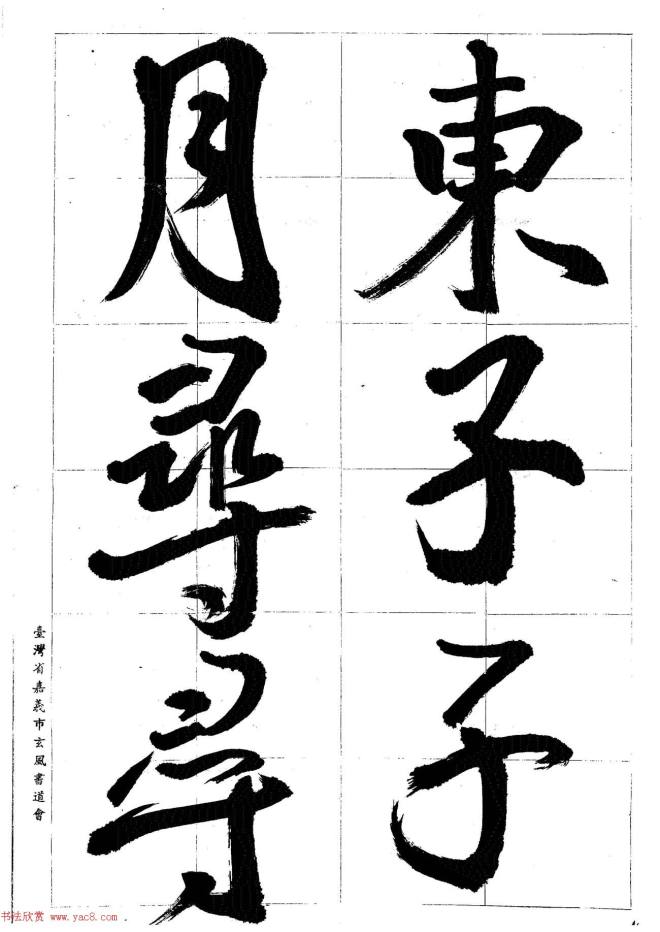 東子子
月尋尋
臺灣省嘉義市玄風書道會
书法欣赏 www.yac8.com .